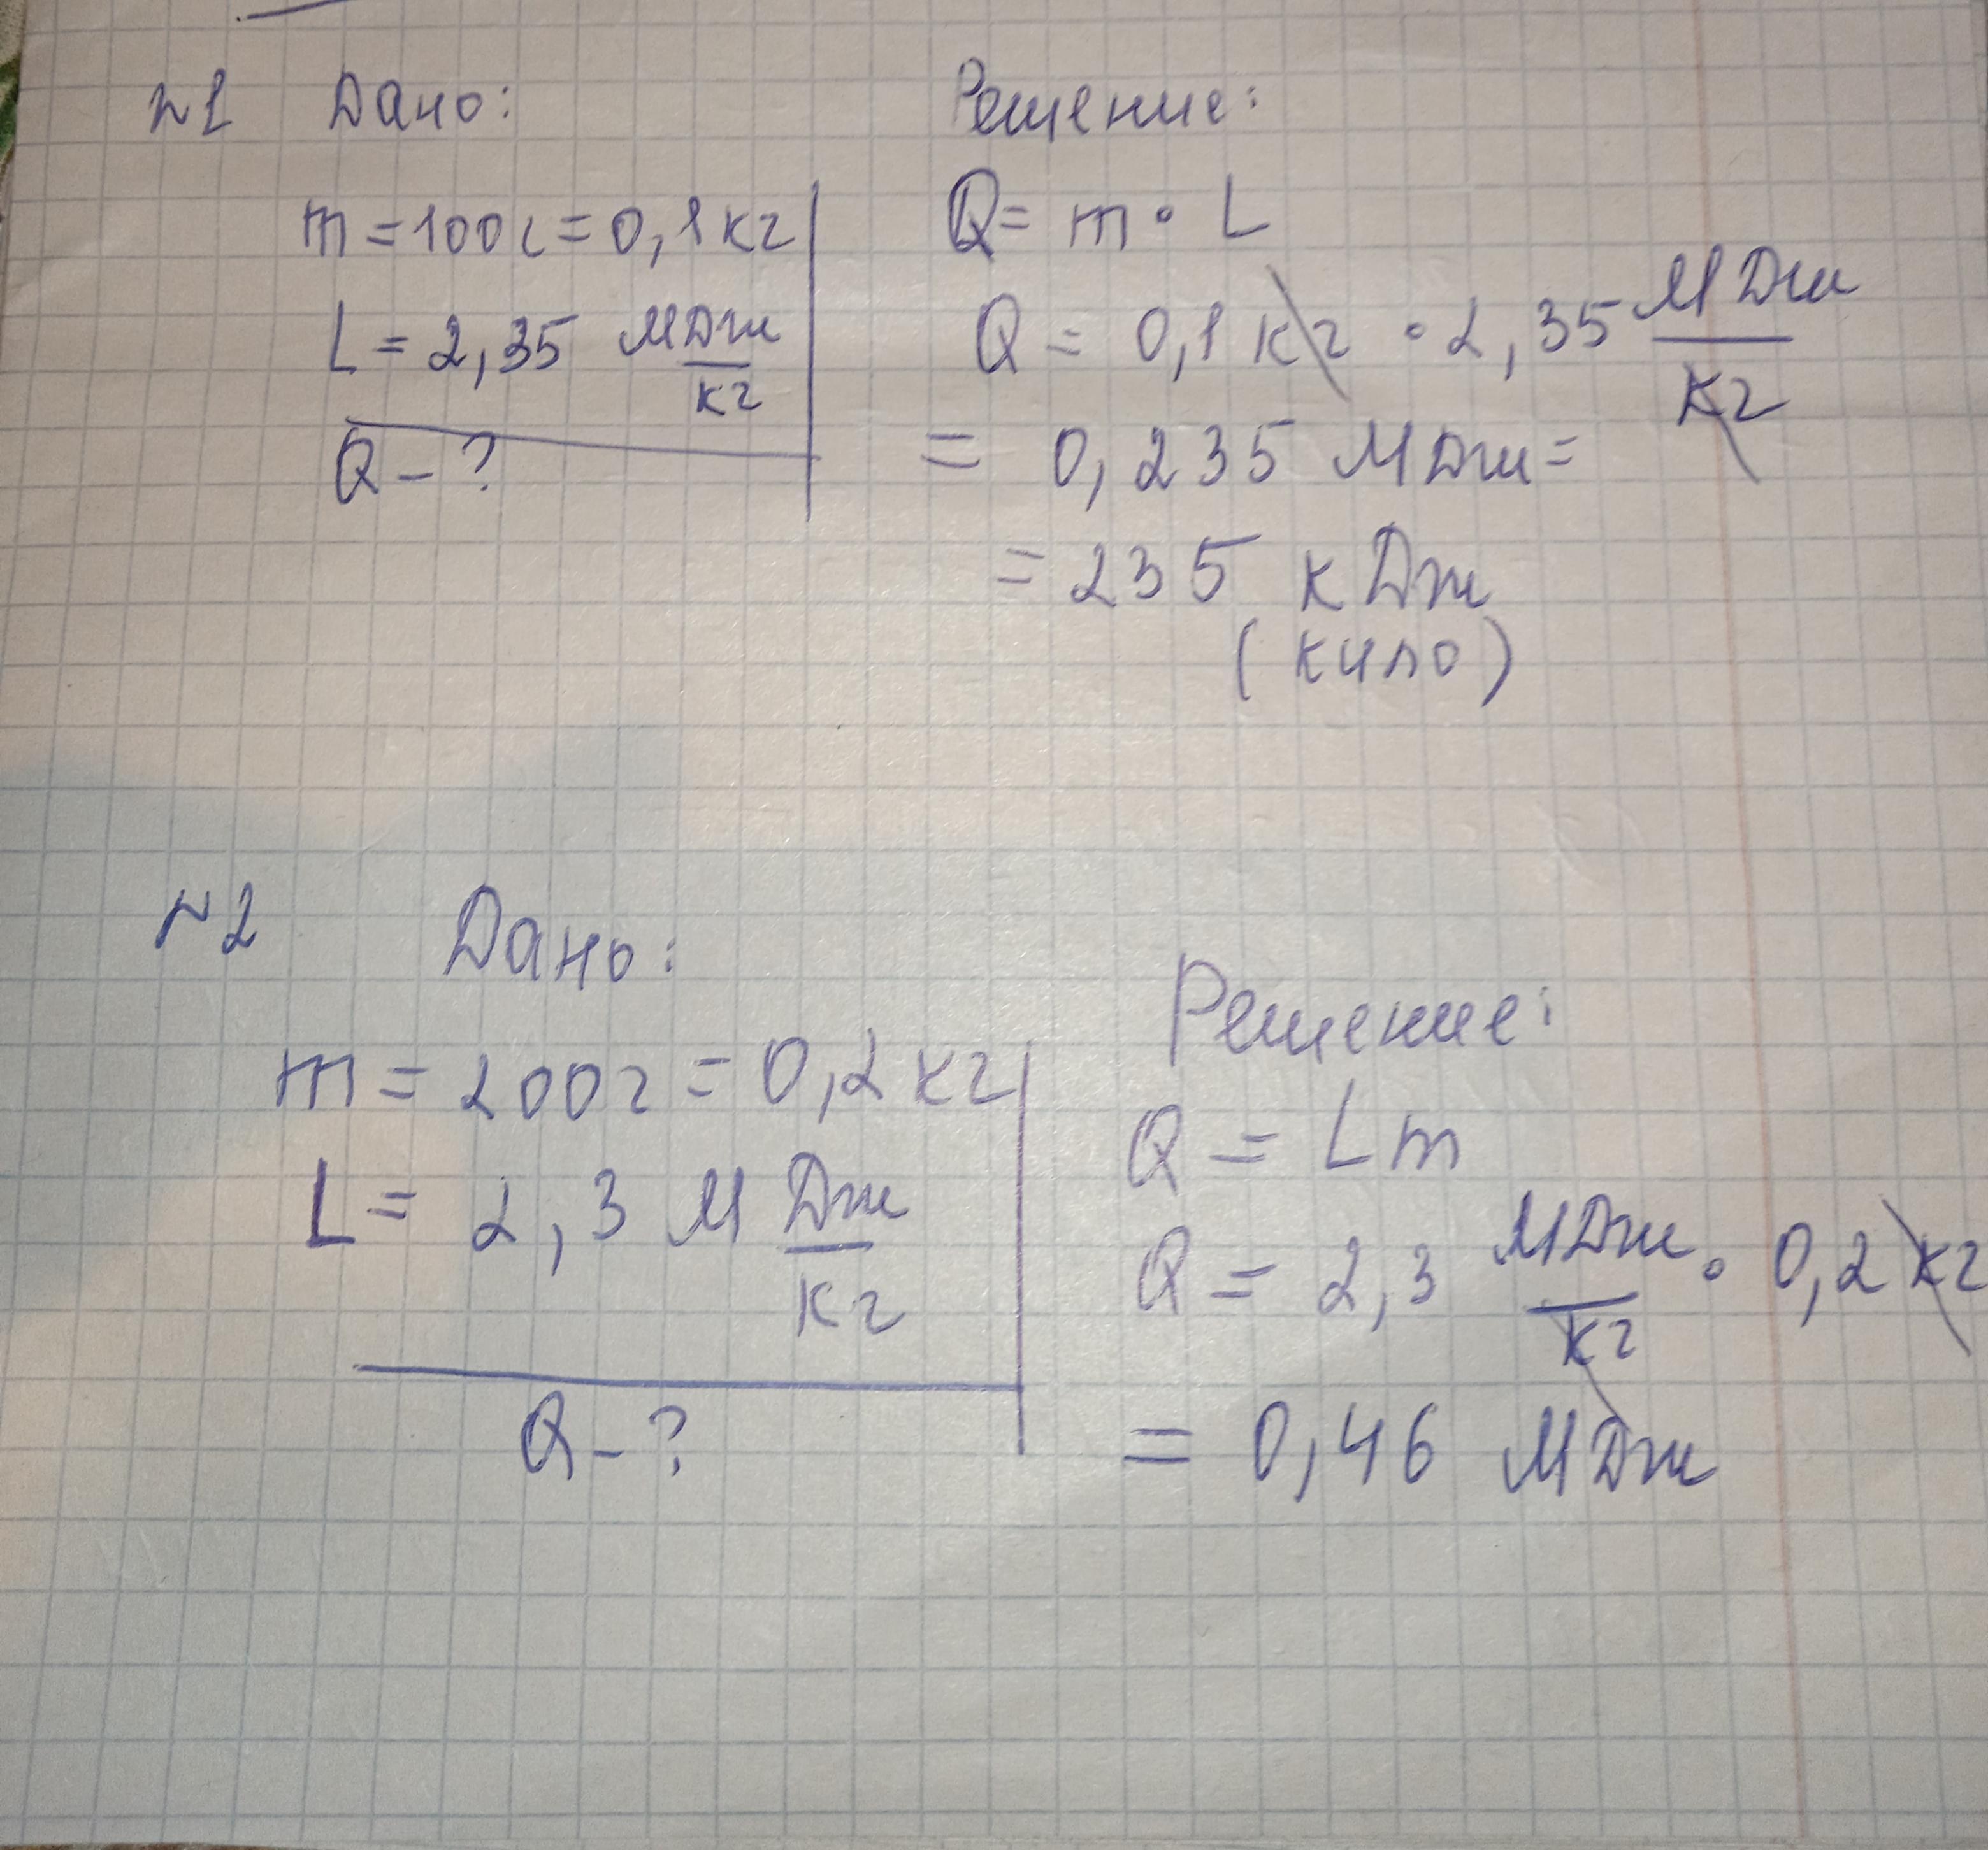 №1 Дано:
m = 100г = 0,1кг
L = 2,35 МДж/кг
Q - ?
Решение:
Q = m · L
Q = 0,1 кг · 2,35 МДж/кг
= 0,235 МДж =
= 235 кДж
(кило)
№2 Дано:
m = 200г = 0,2кг
L = 2,3 МДж/кг
Q - ?
Решение:
Q = Lm
Q = 2,3 МДж/кг · 0,2 кг
= 0,46 МДж